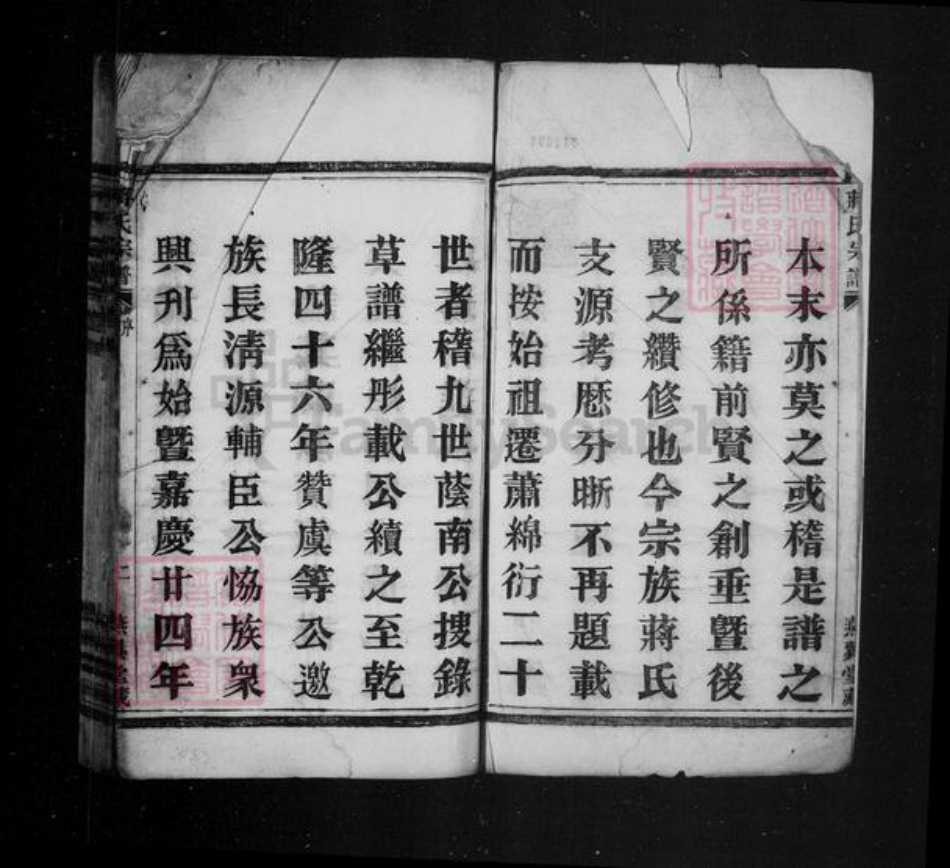 蔣氏宗譜
本末亦莫之或稽是譜之
所係籍前賢之創垂曁後
賢之纘修也今宗族蔣氏
支源考歷分晰不再題載
而按始祖遷蕭綿衍二十
世者稽九世蔭南公搜錄
草譜繼彤載公續之至乾
隆四十六年贊虞等公邀
族長淸源輔臣公恊族衆
興刋爲始曁嘉慶廿四年
氏宗譜
序
FamilySearch